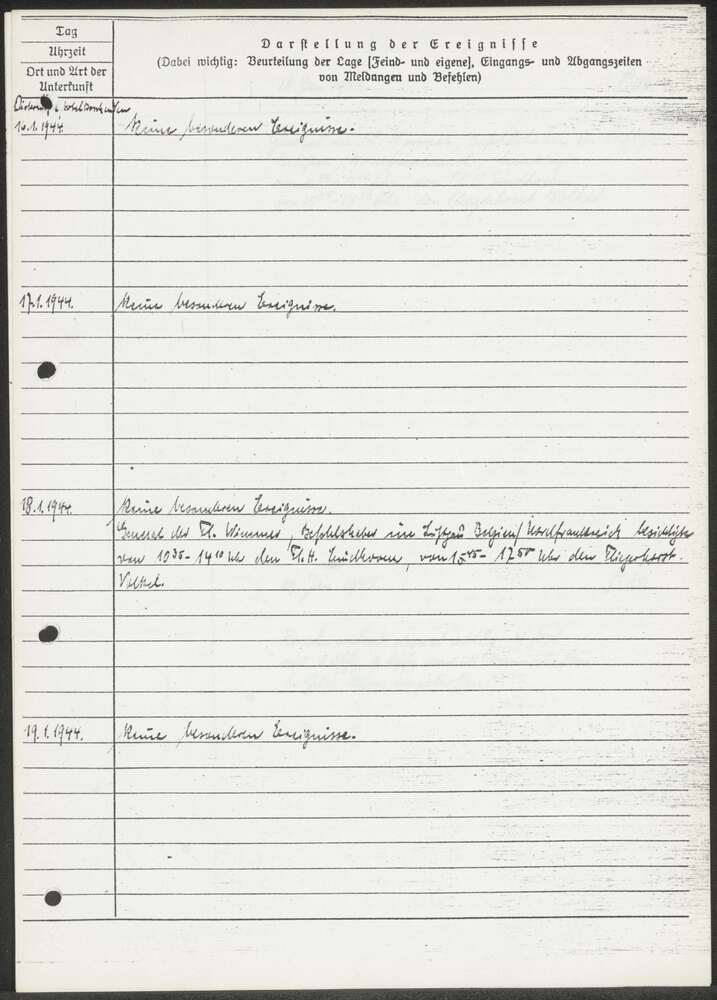 Tag
Uhrzeit
Ort und Art der
Unterkunft
Darstellung der Ereignisse
(Dabei wichtig: Beurteilung der Lage [Feind- und eigene], Eingangs- und Abgangszeiten
von Meldungen und Befehlen)
16.1.1944. Keine besonderen Ereignisse.
17.1.1944. Keine besonderen Ereignisse.
18.1.1944. Keine besonderen Ereignisse.
General der Fl. Wimmer, Befehlshaber im Luftgau Belgien/Nordfrankreich besichtigte
von 10³⁵ - 14¹⁰ Uhr den Fl.H. Eindhoven, von 15⁴⁵ - 17⁵⁰ Uhr den Fliegerhorst
Volkel.
19.1.1944. Keine besonderen Ereignisse.